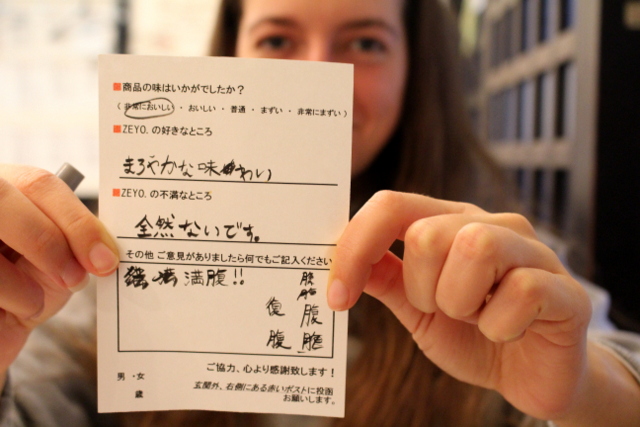 ■商品の味はいかがでしたか？
（ 非常においしい ・ おいしい ・ 普通 ・ まずい ・ 非常にまずい ）
■ZEYO. の好きなところ
まろやかな味わい
■ZEYO. の不満なところ
全然ないです。
その他 ご意見がありましたら何でもご記入ください
満腹!!
復 腹
腹
ご協力、心より感謝致します！
男 ・ 女
歳
玄関外、右側にある赤いポストに投函
お願いします。